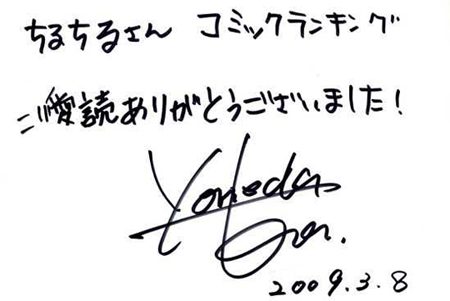 ちるちるさん コミックランキング
ご愛読ありがとうございました！
Yoneda
Kou.
2009.3.8